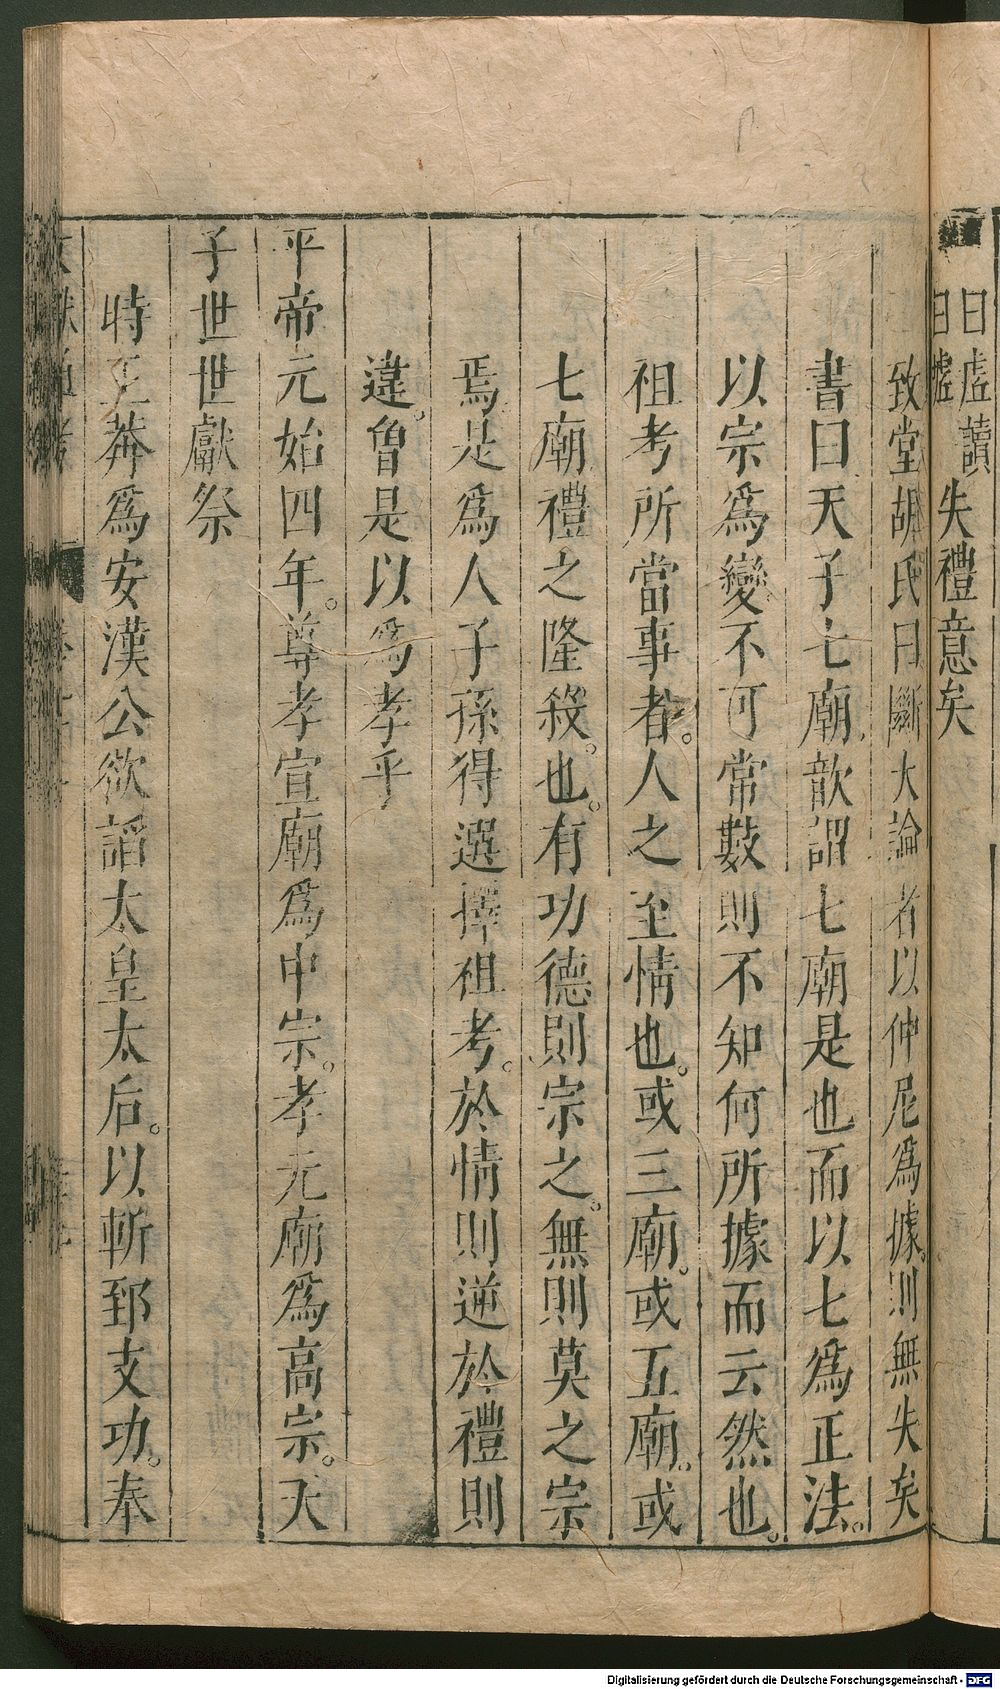 曰虛讀
曰墟
失禮意矣
致堂胡氏曰斷大論者以仲尼爲據。則無失矣
書曰天子七廟歆謂七廟是也而以七爲正法。
以宗爲變不可常數則不知何所據而云然也。
祖考所當事者。人之至情也。或三廟。或五廟。或
七廟禮之隆殺。也。有功德則宗之。無則莫之宗
焉是爲人子孫得選擇祖考。於情則逆於禮則
違。曾是以爲孝乎
平帝元始四年。尊孝宣廟爲中宗。孝元廟爲高宗。天
子世世獻祭
時王莽爲安漢公欲謟太皇太后。以斬郅支功。奉
Digitalisierung gefördert durch die Deutsche Forschungsgemeinschaft - DFG